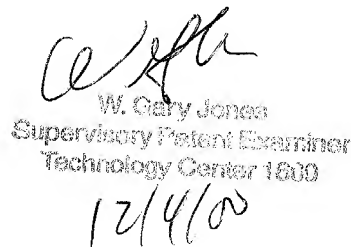 W. Gary Jones
Supervisory Patent Examiner
Technology Center 1600
12/4/00